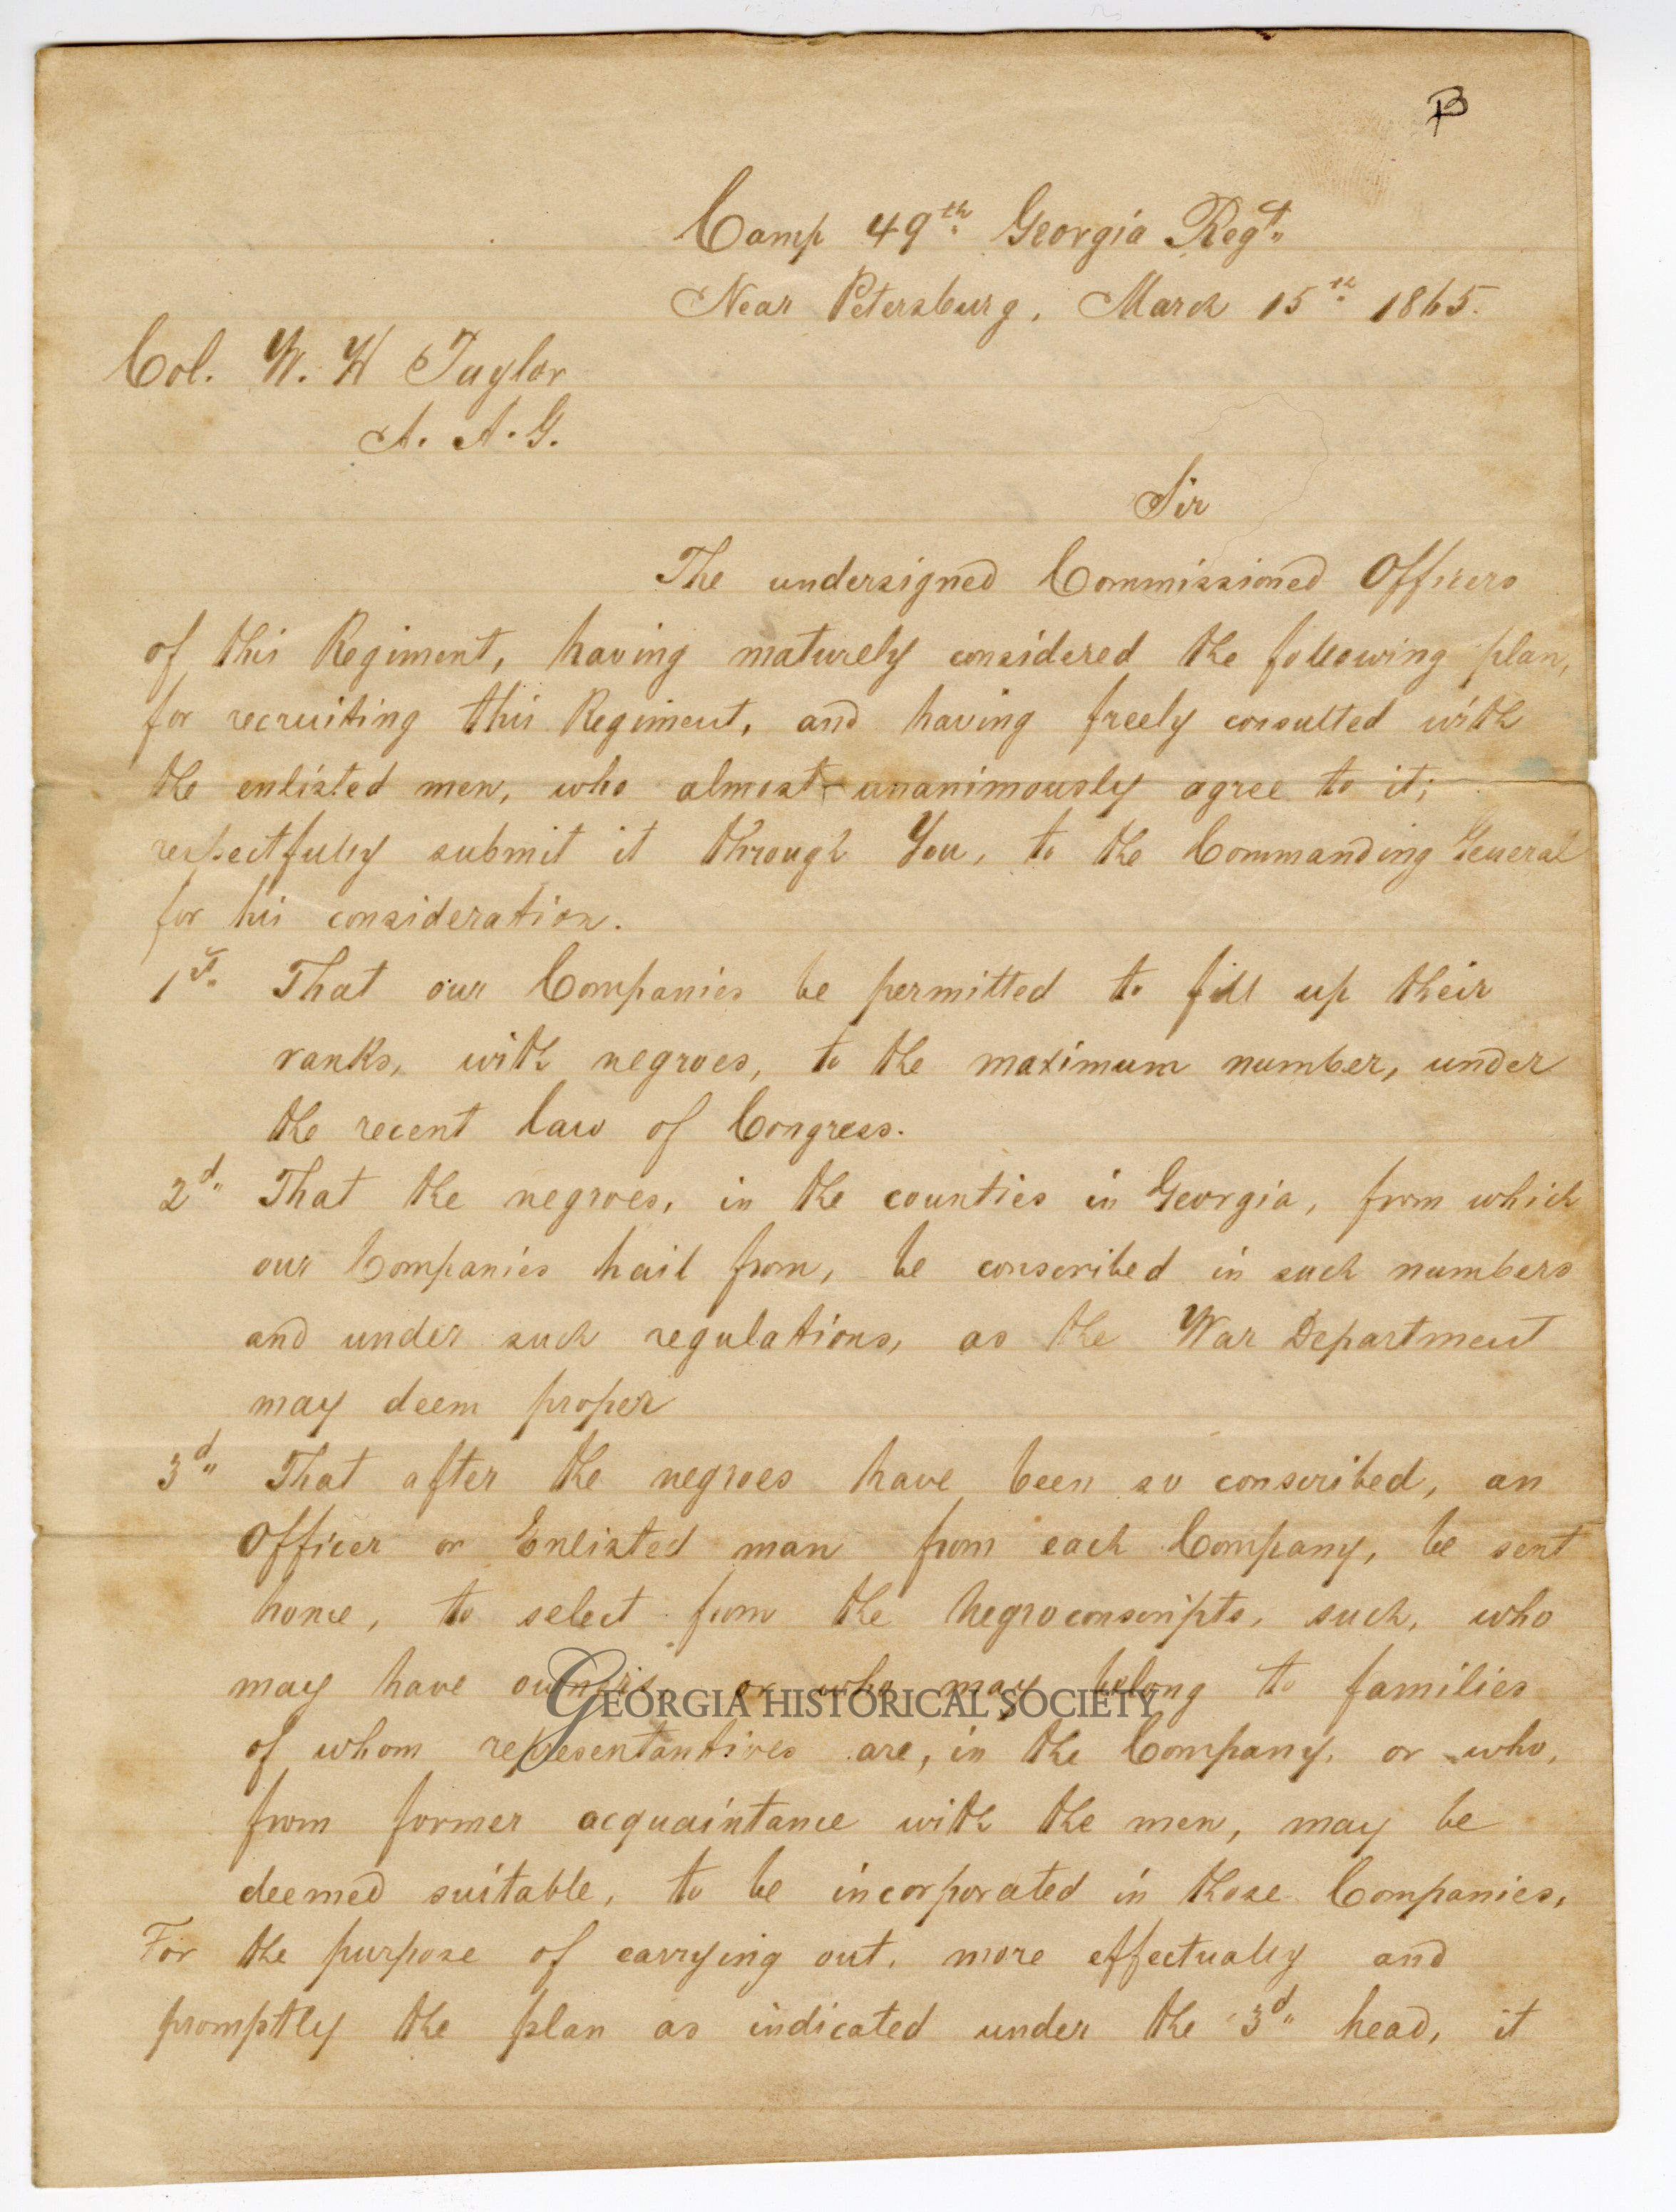 Camp 49th Georgia Regt
Near Petersburg, March 15th 1865.
Col. W. H Taylor
A. A. G.
Sir
The undersigned Commissioned Officers
of this Regiment, having maturely considered the following plan,
for recruiting this Regiment, and having freely consulted with
the enlisted men, who almost unanimously agree to it;
respectfully submit it through You, to the Commanding General
for his consideration.
1st. That our Companies be permitted to fill up their
ranks, with negroes, to the maximum number, under
the recent law of Congress.
2d" That the negroes, in the counties in Georgia, from which
our Companies hail from, be conscribed in such numbers
and under such regulations, as the War Department
may deem proper
3d" That after the negroes have been so conscribed, an
Officer or Enlisted man from each Company, be sent
home, to select from the negro conscripts, such, who
may have owners, or who may belong to families
of whom representantives are, in the Company, or who,
from former acquaintance with the men, may be
deemed suitable, to be incorporated in those Companies,
For the purpose of carrying out, more effectually and
promptly the plan as indicated under the 3d" head, it
GEORGIA HISTORICAL SOCIETY